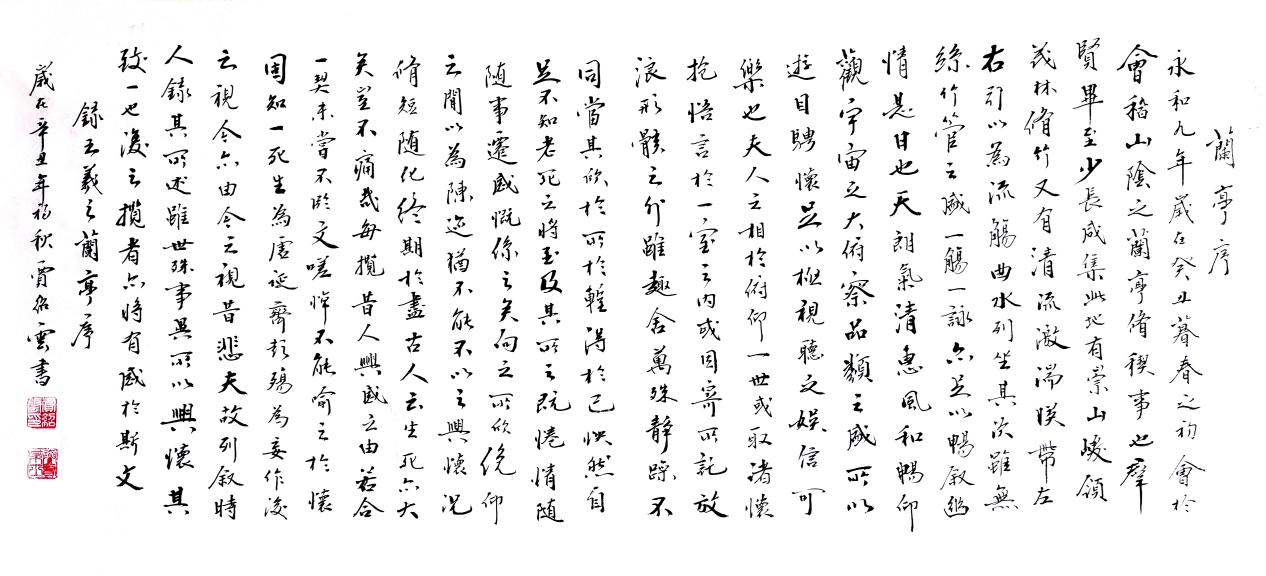 蘭亭序
永和九年歲在癸丑暮春之初會於
會稽山陰之蘭亭脩禊事也羣
賢畢至少長咸集此地有崇山峻領
茂林脩竹又有清流激湍暎帶左
右引以為流觴曲水列坐其次雖無
絲竹管之盛一觴一詠亦足以暢叙幽
情是日也天朗氣清惠風和暢仰
觀宇宙之大俯察品類之盛所以
遊目騁懷足以極視聽之娛信可
樂也夫人之相於俯仰一世或取諸懷
抱悟言於一室之內或因寄所託放
浪形骸之外雖趣舍萬殊靜躁不
同當其欣於所於蹔得於己怏然自
足不知老死之將至及其所之既惓情随
随事遷感慨係之矣向之所欣俛仰
之閒以為陳迹猶不能不以之興懷况
脩短随化終期於盡古人云生死亦大
矣豈不痛哉每攬昔人興感之由若合
一契未嘗不臨文嗟悼不能喻之於懷
固知一死生為虛誕齊彭殤為妄作後
之視今亦由今之視昔悲夫故列叙時
人錄其所述雖世殊事異所以興懷其
致一也後之攬者亦將有感於斯文
錄王羲之蘭亭序
歲在辛丑年初秋賈紹雲書